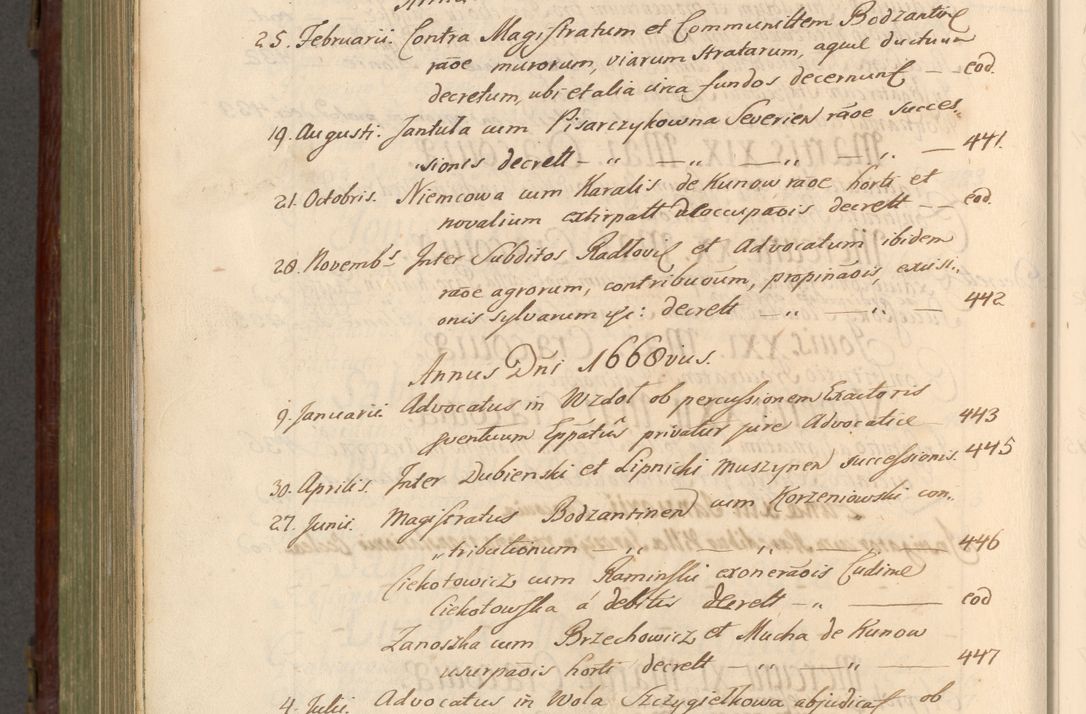 25. Februarii. Contra Magistratum et Communittem Bodzantine
rãoe murorum, viarum stratarum, aquæ ductuum
decretum, ubi et alia circa fundos decernunt — eod.
19. Augusti. Jantuła cum Pisarczykowna Severien rãoe succes„
„sionis decrett — „ — „ — „ — „ — 441.
21. Octobris. Niemcowa cum Karalis de Kunow raoe horti et
novalium extirpatt deoccupãois decrett — — eod.
28. Novembs Inter Subditos Radlovi et Advocatum ibidem
rãoe agrorum, contribuõum, propinaõis excisi„
onis sylvarum &c: decrett — „ — „ — 442
Annus Dñi 1668vus.
9. Januarii. Advocatus in Wzdoł ob percussionem Exactoris
proventuum Eppatûs privatur jure Advocatiæ — 443
30. Aprilis. Inter Dubienski et Lipnicki Muszynen successionis. 445
27. Junii. Magistratus Bodzantinen cum Korzeniowski con„
„tributionum — „ — „ — „ 446
Ciekotowicz cum Kaminski exonerãois Cudime
Ciekotowska á debitis decrett — „ — eod
Zanoszka cum Brzechowicz et Mucha de Kunow
usurpaõis horti decrett — „ — „ — 447
4. Julii. Advocatus in Wola Szczygiełkowa abjudicat ob